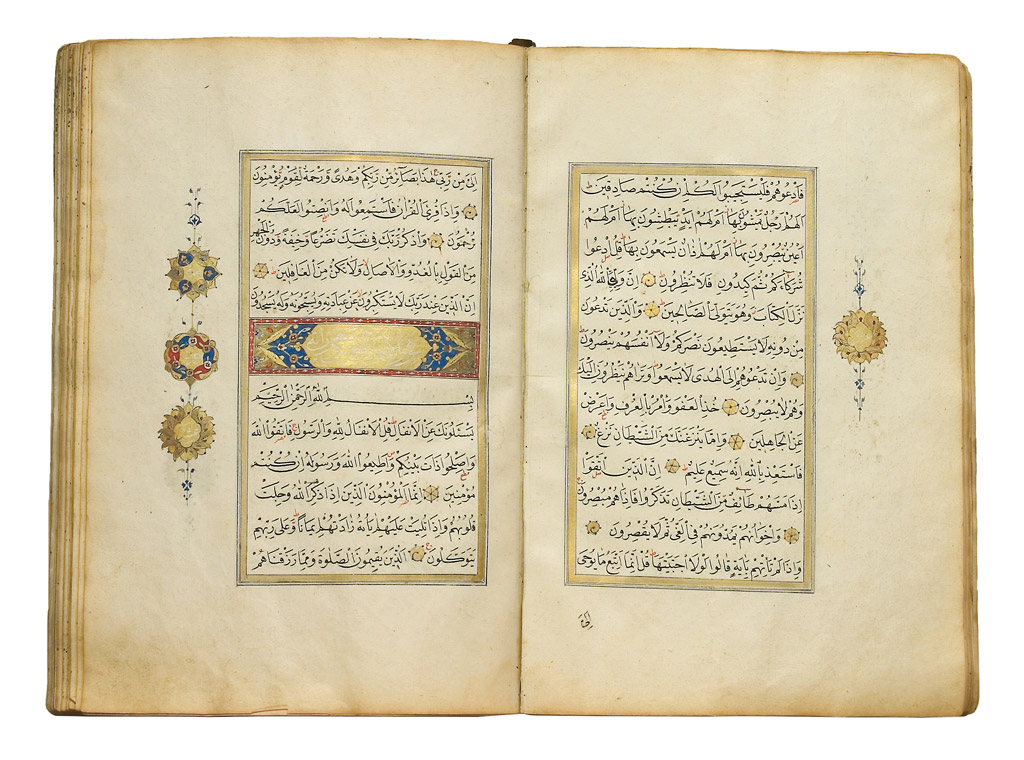 فَادْعُوهُمْ فَلْيَسْتَجِيبُوا لَكُمْ اِنْ كُنْتُمْ صَادِقِينَ
اَلَهُمْ اَرْجُلٌ يَمْشُونَ بِهَا اَمْ لَهُمْ اَيْدٍ يَبْطِشُونَ بِهَا اَمْ لَهُمْ
اَعْيُنٌ يُبْصِرُونَ بِهَا اَمْ لَهُمْ اٰذَانٌ يَسْمَعُونَ بِهَا قُلِ ادْعُوا
شُرَكَاءَكُمْ ثُمَّ كِيدُونِ فَلَا تُنْظِرُونِ اِنَّ وَلِيِّيَ اللّٰهُ الَّذِي
نَزَّلَ الْكِتَابَ وَهُوَ يَتَوَلَّى الصَّالِحِينَ وَالَّذِينَ تَدْعُونَ
مِنْ دُونِهِ لَا يَسْتَطِيعُونَ نَصْرَكُمْ وَلَا اَنْفُسَهُمْ يَنْصُرُونَ
وَاِنْ تَدْعُوهُمْ اِلَى الْهُدَى لَا يَسْمَعُوا وَتَرَاهُمْ يَنْظُرُونَ اِلَيْكَ
وَهُمْ لَا يُبْصِرُونَ خُذِ الْعَفْوَ وَأْمُرْ بِالْعُرْفِ وَاَعْرِضْ
عَنِ الْجَاهِلِينَ وَاِمَّا يَنْزَغَنَّكَ مِنَ الشَّيْطَانِ نَزْغٌ
فَاسْتَعِذْ بِاللّٰهِ اِنَّهُ سَمِيعٌ عَلِيمٌ اِنَّ الَّذِينَ اتَّقَوْا
اِذَا مَسَّهُمْ طَائِفٌ مِنَ الشَّيْطَانِ تَذَكَّرُوا فَاِذَا هُمْ مُبْصِرُونَ
وَاِخْوَانُهُمْ يَمُدُّونَهُمْ فِي الْغَيِّ ثُمَّ لَا يُقْصِرُونَ
وَاِذَا لَمْ تَأْتِهِمْ بِاٰيَةٍ قَالُوا لَوْلَا اجْتَبَيْتَهَا قُلْ اِنَّمَا اَتَّبِعُ مَا يُوحَى
اِلَيَّ
اِلَيَّ مِنْ رَبِّي هٰذَا بَصَائِرُ مِنْ رَبِّكُمْ وَهُدًى وَرَحْمَةٌ لِقَوْمٍ يُؤْمِنُونَ
وَاِذَا قُرِئَ الْقُرْاٰنُ فَاسْتَمِعُوا لَهُ وَاَنْصِتُوا لَعَلَّكُمْ
تُرْحَمُونَ وَاذْكُرْ رَبَّكَ فِي نَفْسِكَ تَضَرُّعًا وَخِيفَةً وَدُونَ الْجَهْرِ
مِنَ الْقَوْلِ بِالْغُدُوِّ وَالْاٰصَالِ وَلَا تَكُنْ مِنَ الْغَافِلِينَ
اِنَّ الَّذِينَ عِنْدَ رَبِّكَ لَا يَسْتَكْبِرُونَ عَنْ عِبَادَتِهِ وَيُسَبِّحُونَهُ وَلَهُ يَسْجُدُونَ
بِسْمِ اللّٰهِ الرَّحْمٰنِ الرَّحِيمِ
يَسْئَلُونَكَ عَنِ الْاَنْفَالِ قُلِ الْاَنْفَالُ لِلّٰهِ وَالرَّسُولِ فَاتَّقُوا اللّٰهَ
وَاَصْلِحُوا ذَاتَ بَيْنِكُمْ وَاَطِيعُوا اللّٰهَ وَرَسُولَهُ اِنْ كُنْتُمْ
مُؤْمِنِينَ اِنَّمَا الْمُؤْمِنُونَ الَّذِينَ اِذَا ذُكِرَ اللّٰهُ وَجِلَتْ
قُلُوبُهُمْ وَاِذَا تُلِيَتْ عَلَيْهِمْ اٰيَاتُهُ زَادَتْهُمْ اِيمَانًا وَعَلَى رَبِّهِمْ
يَتَوَكَّلُونَ اَلَّذِينَ يُقِيمُونَ الصَّلٰوةَ وَمِمَّا رَزَقْنَاهُمْ